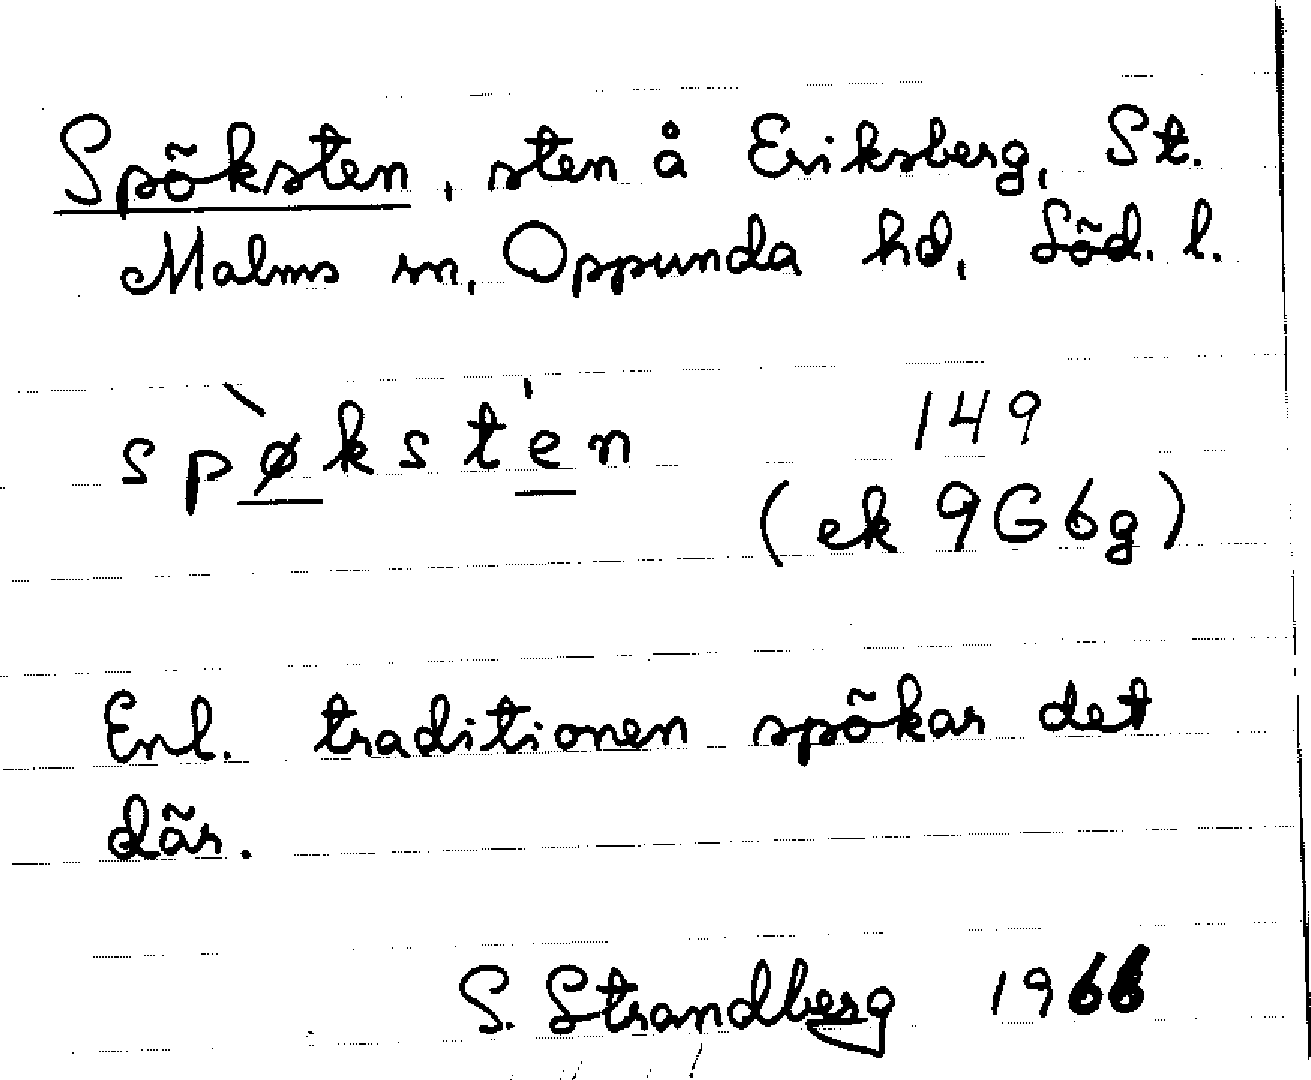 Spöksten, sten å Eriksberg, St.
Malms sn, Oppunda hd, Söd. l.
spø̀kstén
149
(ek 9G6g)
Enl. traditionen spökar det
där.
S. Strandberg 1966